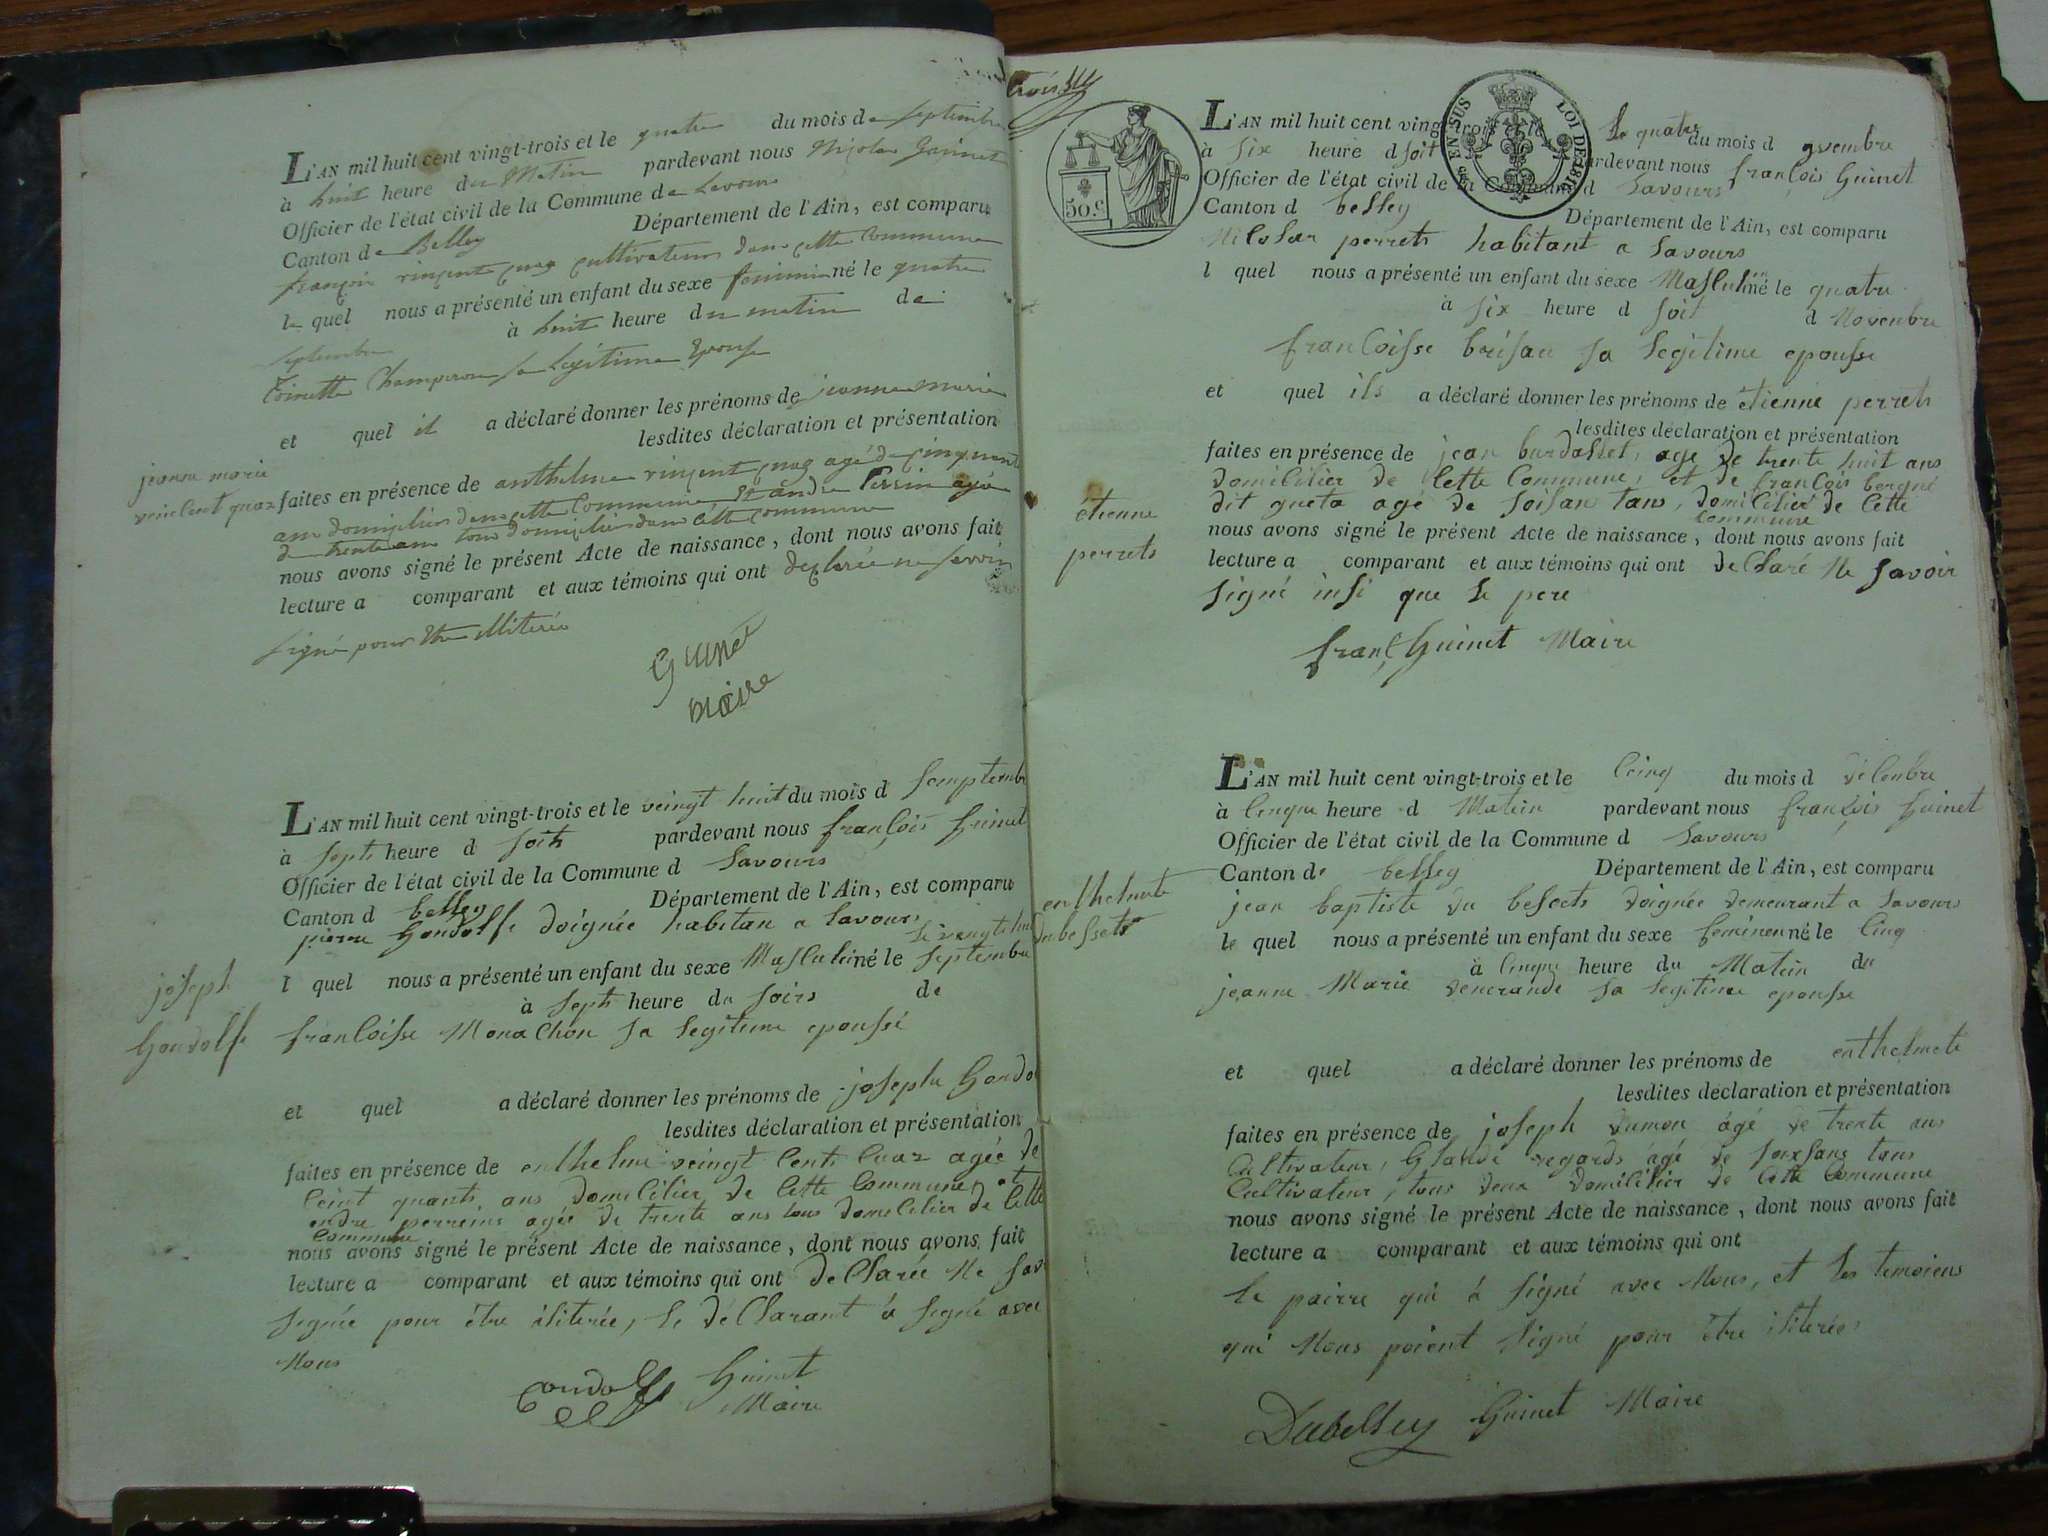 L'AN mil huit cent vingt-trois et le quatre du mois de septembre
à huit heure du Matin pardevant nous Nicolas Guinet
Officier de l'état civil de la Commune de Savours
Canton de Belley Département de l'Ain, est comparu
françois vincent quaz cultivateur dans cette commune
le quel nous a présenté un enfant du sexe feminin né le quatre
septembre à huit heure du matin de
Champeron sa Légitime Epouse
et quel il a déclaré donner les prénoms de jeanne marie
lesdites déclaration et présentation
jeanne marie
veincent quaz
faites en présence de anthelme vincent quaz agé de cinquante
ans domicilier dans cette commune, Et andré Perrin agé
de trente ans tous domicilier dans cette commune
nous avons signé le présent Acte de naissance, dont nous avons fait
lecture a comparant et aux témoins qui ont declarée ne savoir
signé pour Etre illiterée
Guinet
maire
L'AN mil huit cent vingt-trois et le veingt huit du mois d Semptembr
à septs heure d soits pardevant nous françois Guinet
Officier de l'état civil de la Commune d Savours
Canton d belley Département de l'Ain, est comparu
pierre Gondolfe doignée habitan a Savours
le veingts hui
joseph
Gondolfe
l quel nous a présenté un enfant du sexe Masculin né le septembre
à septs heure du soirs de
francoisse Monachon sa legitime epousse
et quel a déclaré donner les prénoms de josephe Gondo
lesdites déclaration et présentation
faites en présence de enthelme veingt cents cuaz agée de
ceint quants ans domicilier de cette commune, et
endre perreins agée de trente ans tous domicilier de cette
commune
nous avons signé le présent Acte de naissance, dont nous avons fait
lecture a comparant et aux témoins qui ont declarée ne sav
signée pour être iliterée, le déclarant à signé avec
nous
Gondolfe Guinet
Maire
trois
50.c
EN SUS
LOI DE 1816
L'AN mil huit cent vingt-trois et le Le quatre du mois d
à six heure d soit pardevant nous françois Guinet
Officier de l'état civil de la Commune d Savours
Canton d belley Département de l'Ain, est comparu
Nicolar perrets habitant a Savours
l quel nous a présenté un enfant du sexe Masculin né le quatre
à six heure d soit d Novenbre
francoisse brisau sa legitime epousse
et quel ils a déclaré donner les prénoms de étienne perrets
lesdites déclaration et présentation
faites en présence de jean burdasset, age de trente huit ans
domicilier de cette commune, et de francois bergné
étienne
perrets
dit gneta agé de soisan tans, domicilier de cette
commune
nous avons signé le présent Acte de naissance, dont nous avons fait
lecture a comparant et aux témoins qui ont declaré ne savoir
signé insi que le pere
franç Guinet Maire
L'AN mil huit cent vingt-trois et le cinq du mois d décenbre
à cinque heure d Matein pardevant nous françois Guinet
Officier de l'état civil de la Commune d Savours
Canton de belley Département de l'Ain, est comparu
enthelmete
dubessets
jean baptiste du bessets doignée demeurant a Savours
le quel nous a présenté un enfant du sexe feminen né le cinq
à cinque heure du Matein du
jeanne Marie venerande sa legitime epousse
et quel a déclaré donner les prénoms de enthelmete
lesdites déclaration et présentation
faites en présence de joseph dumon âgé de trente ans
Cultivateur, Glaude regards âgé de soixsans tans
Cultivateur, tous deux domicilier de cette commune
nous avons signé le présent Acte de naissance, dont nous avons fait
lecture a comparant et aux témoins qui ont
le pairre qui à signé avec nous, et les temoiens
qui nous poient signé pour être iliterées
Dubessey Guinet Maire